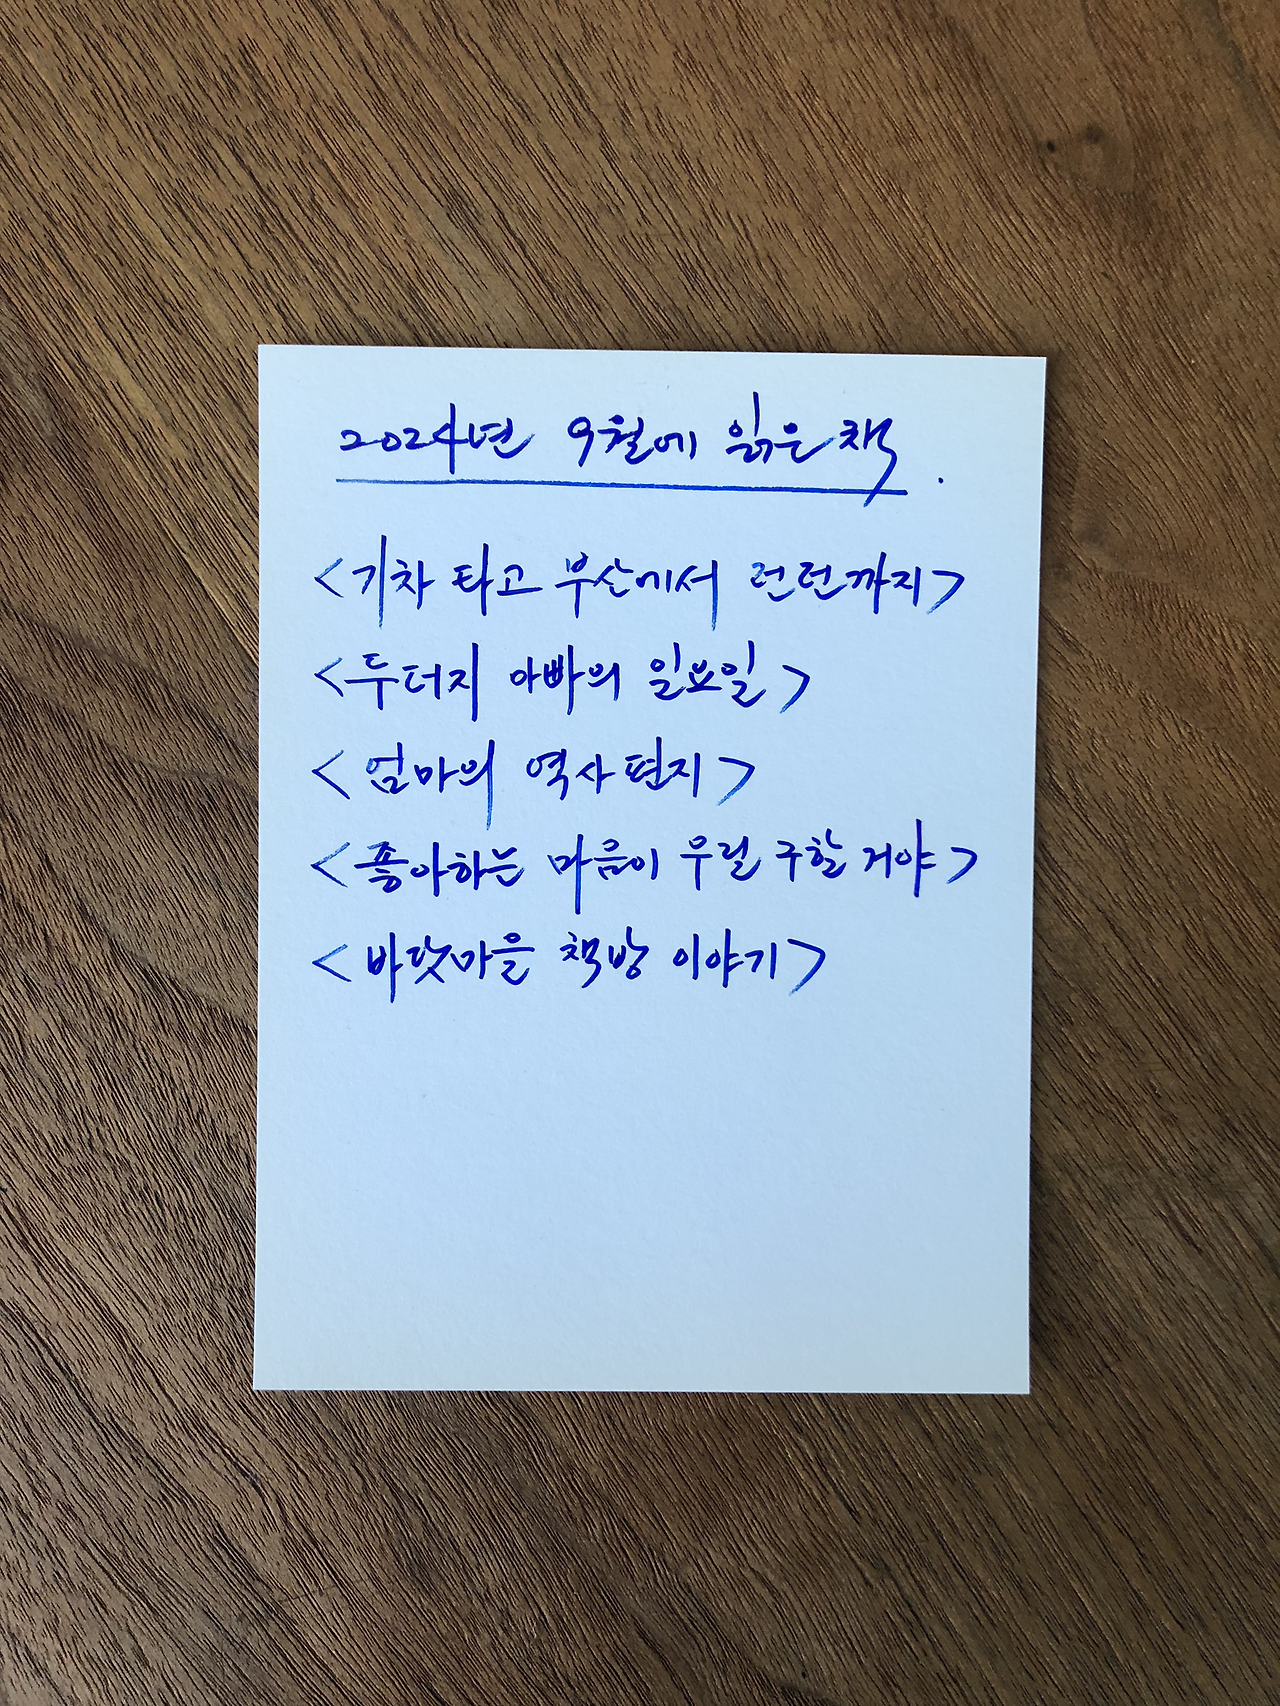 2024년 9월에 읽은 책.
<기차 타고 부산에서 런던까지>
<두더지 아빠의 일요일>
<엄마의 역사편지>
<좋아하는 마음이 우릴 구할 거야>
<바닷마을 책방 이야기>